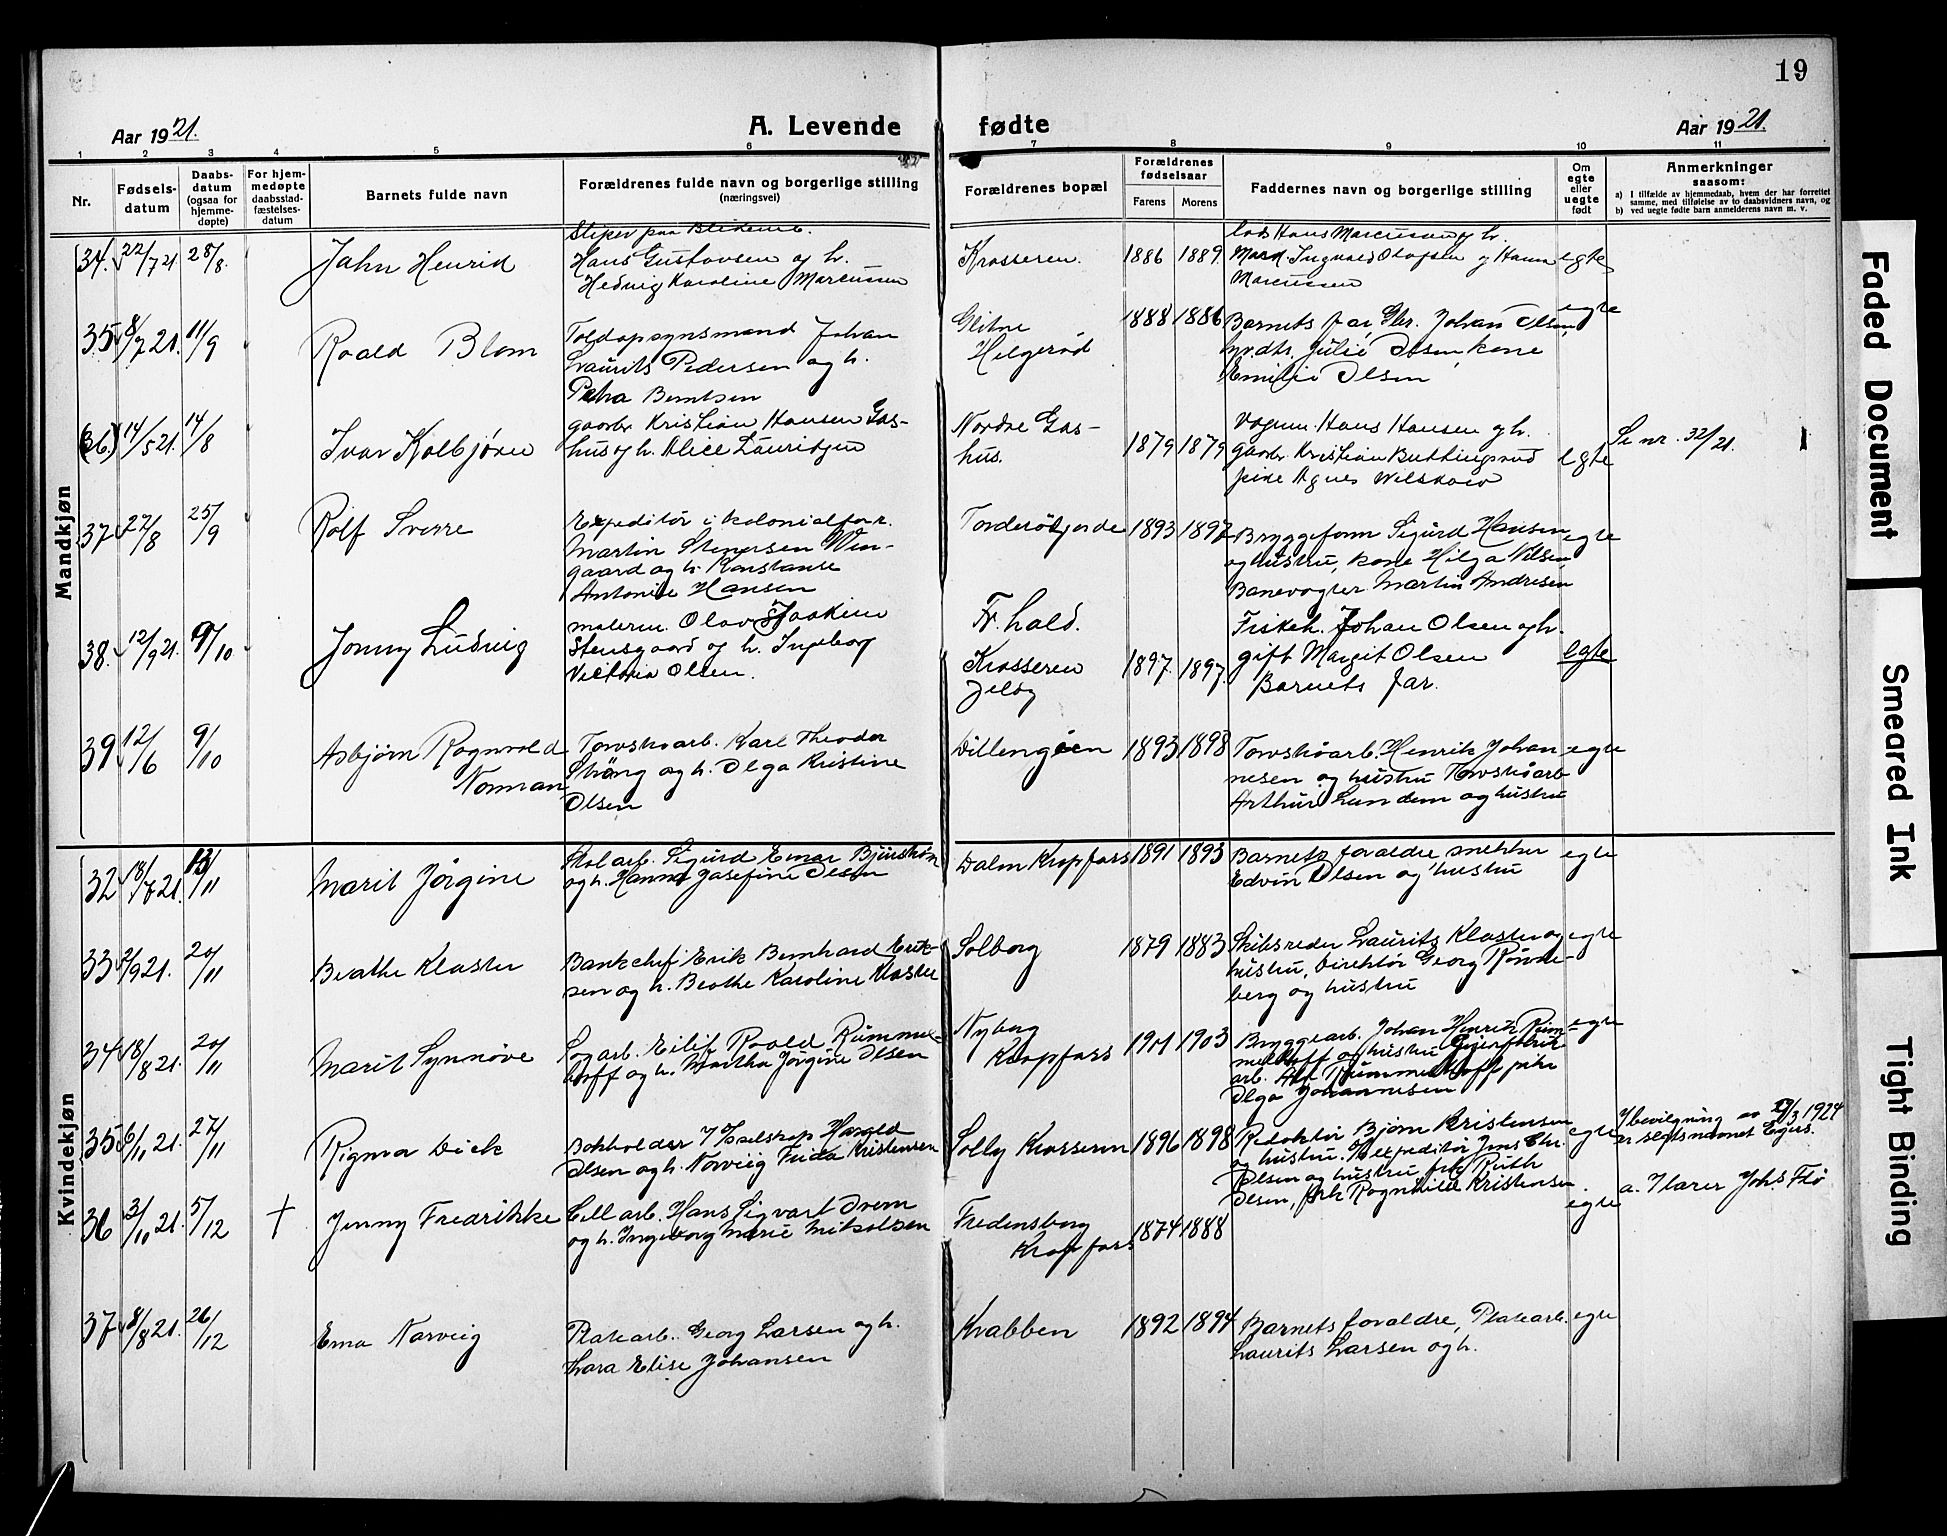 19
Aar 1921.
A. Levende
fødte
Aar 1921.
1 2 3 4 5 6 7 8 9 10 11
Nr.
Fødsels-
datum
Daabs-
datum
(ogsaa for
hjemme-
døpte)
For hjem-
medøpte
daabsstad-
fæstelses-
datum
Barnets fulde navn
Forældrenes fulde navn og borgerlige stilling
(næringsvei)
Forældrenes bopæl
Forældrenes
fødselsaar
Farens
Morens
Faddernes navn og borgerlige stilling
Om
egte
eller
uegte
født
Anmerkninger
saasom:
a) I tilfælde av hjemmedaab, hvem der har forrettet
samme, med tilføielse av to daabsvidners navn, og
b) ved uegte fødte barn anmelderens navn m. v.
Mandkjøn
34. 22/7 21 28/8.
Jahn Henrid
Hans Gustavsen og h.
Hedvig Karoline Marcussen
Krosseren.
1886 1889.
Ingvald Olafsen og Hanna
Marcussen
egte
35 8/7 21. 11/9
Roald Blom
Toldopsynsmand Johan
Laurits Pedersen og h.
Petra Berntsen
Glitne
Helgerød
1888 1886
Barnets far, Gbr. Johan Olsen,
Julie Olsen, kone
Emilie Olsen
egte
(36.) 14/5 21. 14/8
Ivar Kolbjørn
gaarbr Kristian Hansen Gas-
hus og h. Alice Lauridsen
Nordre Gas-
hus.
1879 1879
Vognm. Hans Hansen og h.
gaarbr. Kristian Buttingsrud
pike Agnes Wilskow
egte
Se nr. 32/21.
37 27/8 25/9
Rolf Sverre
Expeditør i kolonialforr.
Martin Stenersen Win-
gaard og h. Konstanse
Antonie Hansen
Torderødgjorde
1893 1897
Bryggeform Sigurd Hansen
og hustru, kone Helga Nilsen,
Banevogter Martin Andresen
egte
38. 12/9 21. 9/10
Jonny Ludvig
maleren. Olav Joakim
Stensgaard og h. Ingeborg
Victoria Olsen.
Fr. hald.
Krosseren
Jeløy
1897. 1897.
Fiskeh. Johan Olsen og h.
gift Margit Olsen
Barnets far.
egte
39 12/6 9/10
Asbjørn Ragnvald
Norman
Torvstrøarb. Karl Theodor
Strøng og h. Olga Kristine
Olsen
Dillengøen
1893 1898
Torvstrøarb. Henrik Johan
nesen og hustru Torvstrøarb
Arthur Lundem og hustru
egte
Kvindekjøn
32 18/7 21. 13/11
Marit Jørgine
Stol arb. Sigurd Einar Bjünström
og h. Hanna Josefine Olsen
Dalen Kropfoss
1891 1893
Barnets foraldre snekker
Edvin Olsen og hustru
egte
33 2/9 21. 20/11
Beathe Kloster
Bankchef Erik Bernhard Erik-
sen og h. Beathe Karoline Kloster
Solborg
1879 1883
Skibsreder Laurits Kloster og
hustru, Direktør Georg Rønne-
berg og hustru
egte
34 18/8 21. 20/11
Marit Synnøve
Sagarb. Eilif Roald Rümmel-
hoff og h. Martha Jørgine Olsen
Nyborg
Kropfoss
1901 1903
Bryggearb. Johan Henrik Rüm-
melhoff og hustru
arb. Alf Rümmelhoff pike
Olga Johannesen
egte
35 6/11 21. 27/11
Rigmor Dick
Bokholder I Isselskap Harald
Olsen og h. Norveig Frida Kristensen
Solby Krosseren
1896 1898
Redaktør Bjørn Kristensen
og hustru. Expeditør Jens Chr.
Olsen og hustru frk Ruth
Olsen, frk Ragnhild Kristensen
egte
I bevilgning av 17/3 1924
er slegtsnavnet Egers.
36 3/10 21. 5/12 †
Jenny Fredrikke
Cell arb. Hans Sigvart Drem
og h. Ingeborg Marie Mikalsen
Fredensborg
Kropfoss
1874 1888
egte
a. Ilærer Johs Flø
37 8/8 21. 26/12
Erna Norveig
Platearb. Georg Larsen og h.
Lara Elise Johansen
Krabben
1892 1894
Barnets foraldre, Platearb.
Laurits Larsen og h.
egte
Faded Document
Smeared Ink
Tight Binding